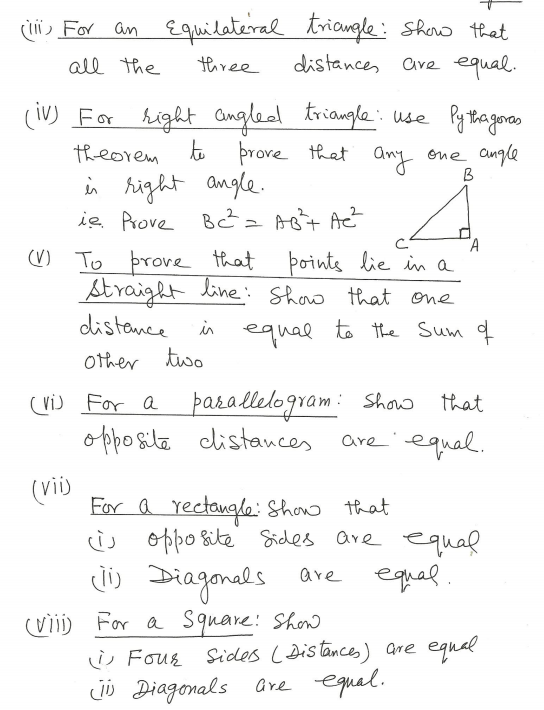 (iii) For an Equilateral triangle: Show that
all the three distances are equal.
(iv) For right angled triangle: use Pythagoras
theorem to prove that any one angle
is right angle.
i.e. Prove BC² = AB² + AC²
B
C
A
(v) To prove that points lie in a
straight line: Show that one
distance is equal to the sum of
other two
(vi) For a parallelogram: Show that
opposite distances are equal.
(vii)
For a rectangle: Show that
(i) opposite sides are equal
(ii) Diagonals are equal.
(viii) For a Square: Show
(i) Four sides (Distances) are equal
(ii) Diagonals are equal.